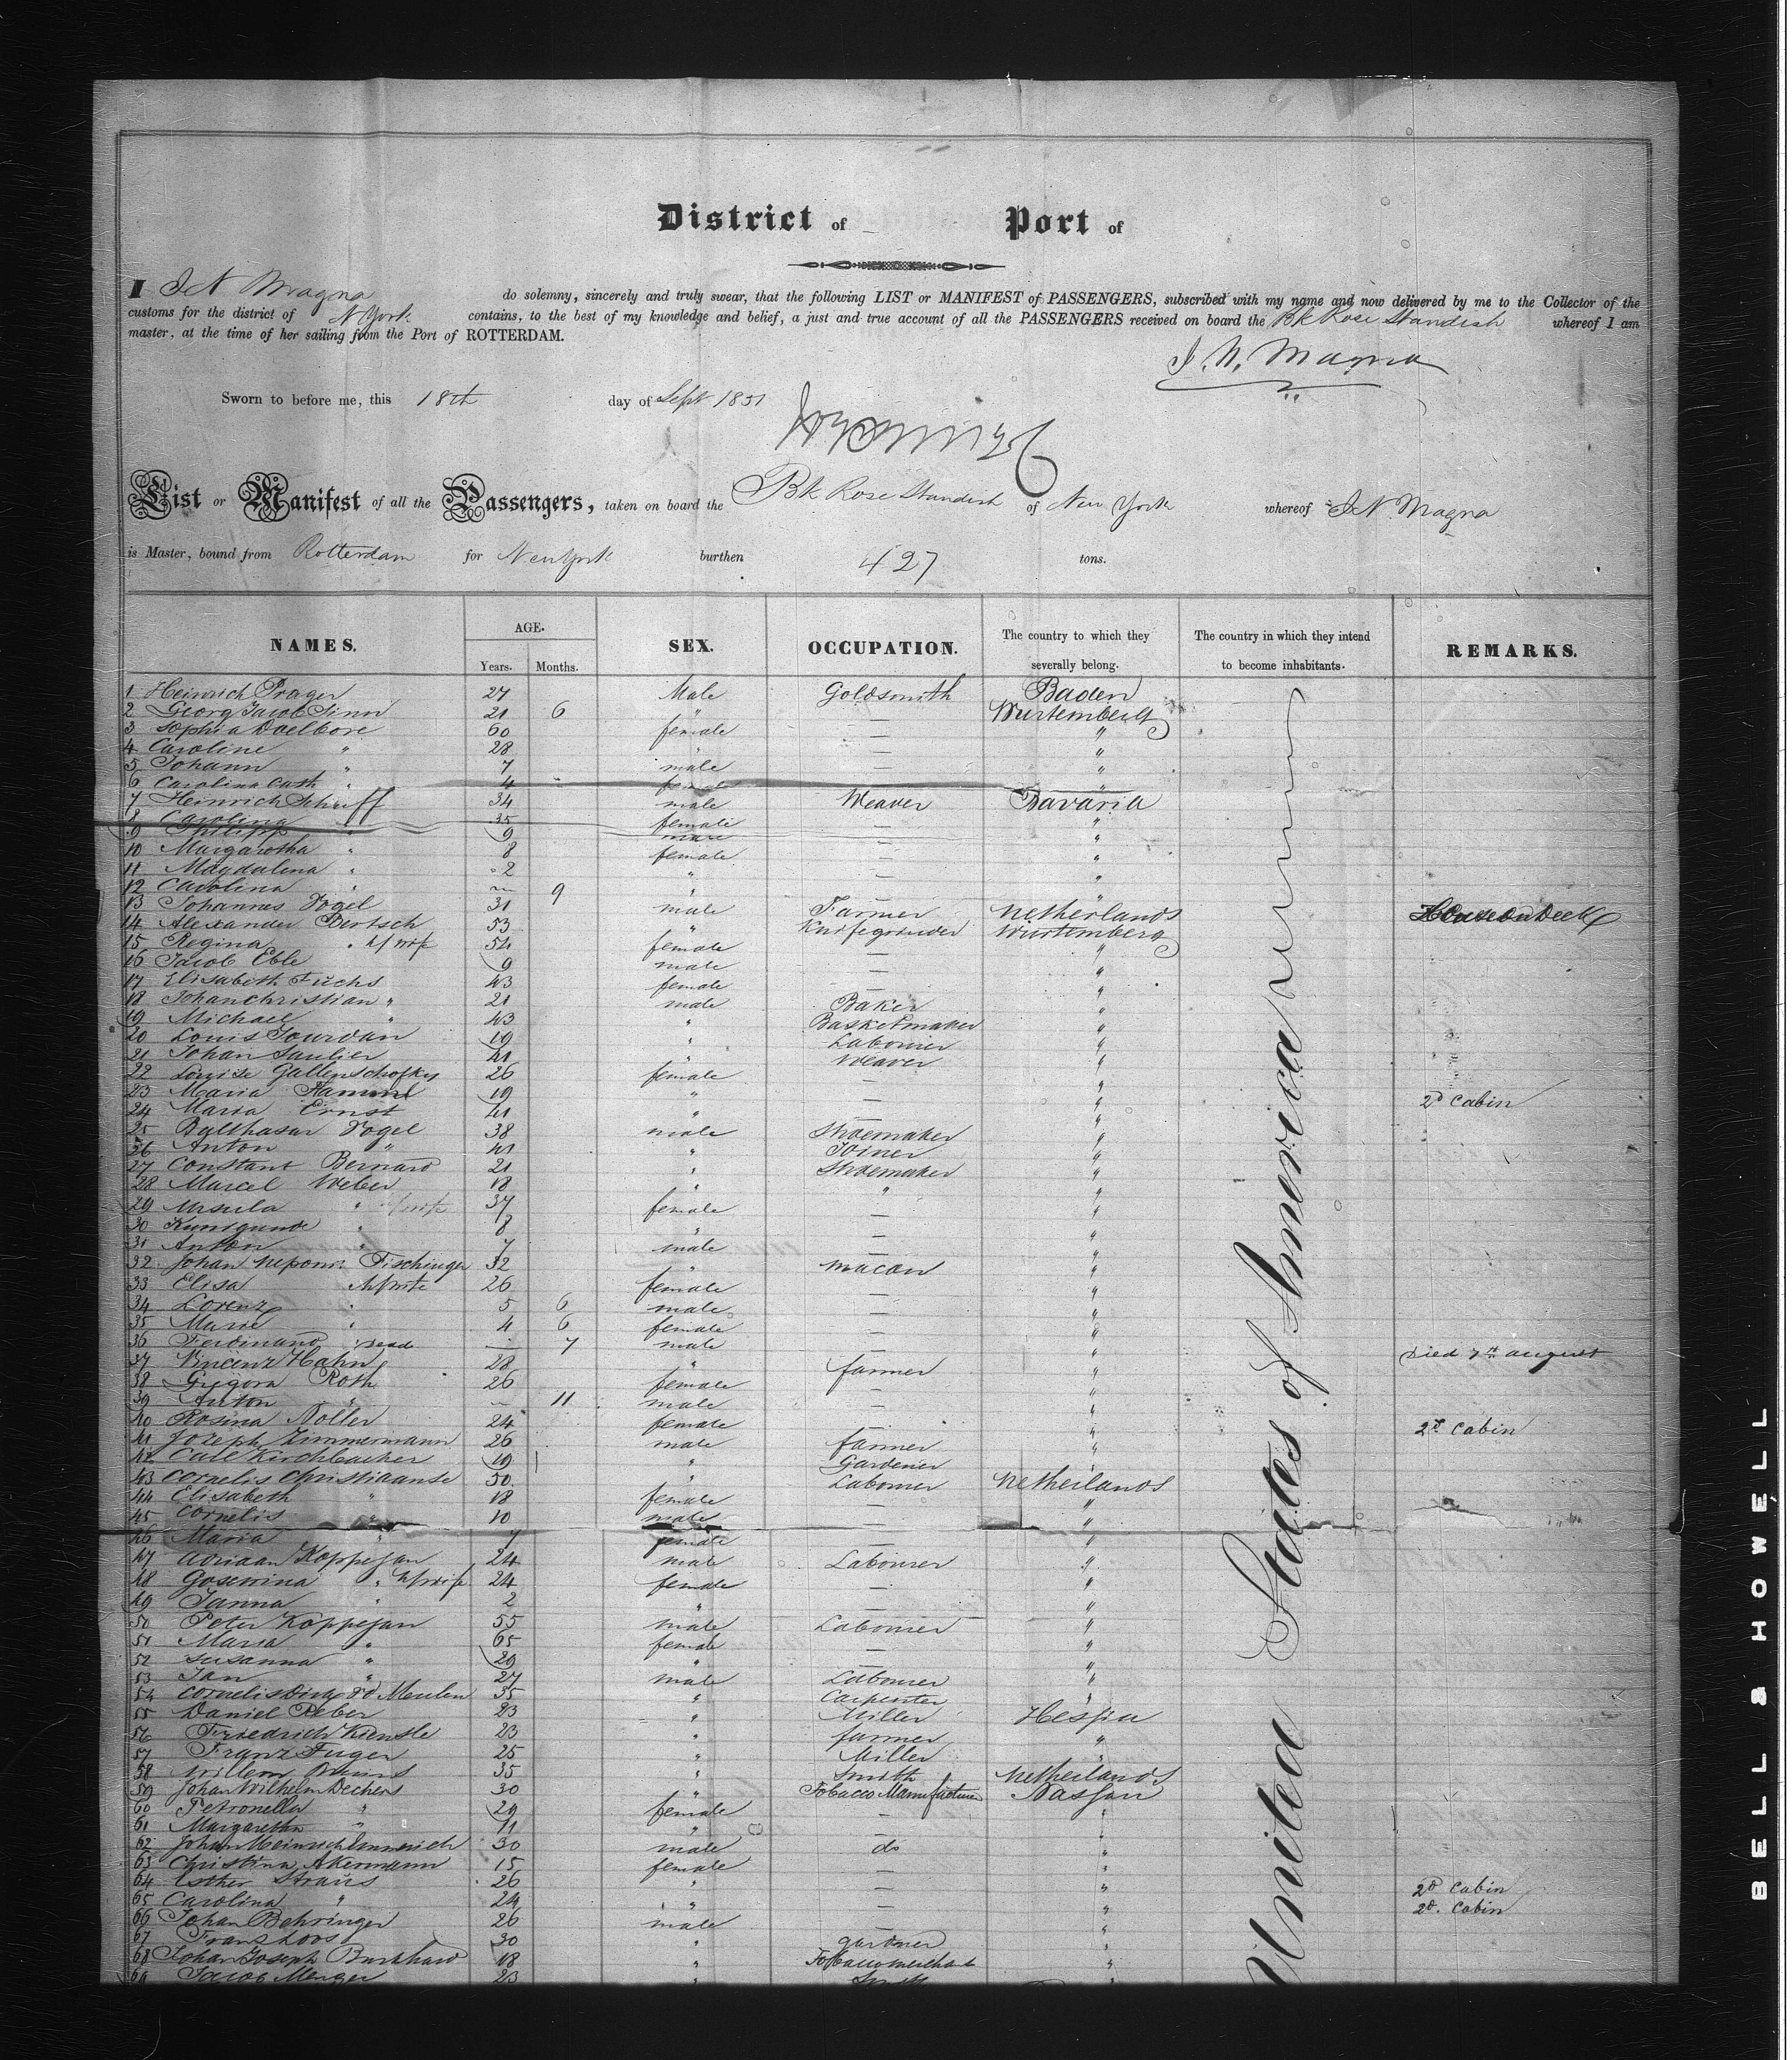 District of Port of
I I N Magna do solemny, sincerely and truly swear, that the following LIST or MANIFEST of PASSENGERS, subscribed with my name and now delivered by me to the Collector of the
customs for the district of N York contains, to the best of my knowledge and belief, a just and true account of all the PASSENGERS received on board the Bk Rose Standish whereof I am
master, at the time of her sailing from the Port of ROTTERDAM.
I. N. Magna
Sworn to before me, this 18th day of Sept 1851
List or Manifest of all the Passengers, taken on board the Bk Rose Standish of New York whereof I N. Magna
is Master, bound from Rotterdam for New York burthen 427 tons.
NAMES. AGE. Years. Months. SEX. OCCUPATION. The country to which they severally belong. The country in which they intend to become inhabitants. REMARKS.
United States of America
1 Heinrich Prager 27 Male Goldsmith Baden
2 Georg Jacob Sinn 21 6 " — Wurtemberg
3 Sophia Doelbore 60 female — "
4 Caroline " 28 " — "
5 Johann " 7 male — "
6 Carolina Cath " 4 female — "
7 Heinrich Schriff 34 male Weaver Bavaria
8 Carolina " 35 female — "
9 Philipp " 9 male — "
10 Margaretha " 8 female — "
11 Magdalena " 2 " — "
12 Carolina " — 9 " — "
13 Johannes Vogel 31 male Farmer Netherlands House on Deck
14 Alexander Bertsch 53 " Knifegrinder Wurtemberg
15 Regina " h/wife 54 female — "
16 Jacob Eble 9 male — "
17 Elisabeth Fuchs 43 female — "
18 Johan Christian " 21 male Baker "
19 Michael " 43 " Basketmaker "
20 Louis Jourdan 19 " Labourer "
21 Johan Saulier 41 " Weaver "
22 Louise Gallenschofky 26 female — "
23 Maria Hammel 19 " — " 2d Cabin
24 Maria Ernst 41 " — "
25 Balthasar Vogel 38 male Shoemaker "
26 Anton " 41 " Joiner "
27 Constant Bernard 21 " Shoemaker "
28 Marcel Weber 18 " " "
29 Ursula " h/wife 37 female — "
30 Kunigunde " 8 " — "
31 Anton " 7 male — "
32 Johan Nepom: Fischinger 32 " Macon "
33 Elisa h/wife 26 female — "
34 Lorenz " 5 6 male — "
35 Marie " 4 6 female — "
36 Ferdinand " dead — 7 male — " Died 7th August
37 Vincenz Hahn 28 " farmer "
38 Gregora Roth 26 female — "
39 Anton " — 11 male — "
40 Rosina Noller 24 female — " 2d Cabin
41 Joseph Zimmermann 26 male farmer "
42 Carl Kirchbacher 19 " Gardener "
43 Cornelis Christiaanse 50 " Labourer Netherlands
44 Elisabeth " 18 female — "
45 Cornelis " 10 male — "
46 Maria " 7 female — "
47 Adriaan Koppejan 24 male Labourer "
48 Goserina " h/wife 24 female — "
49 Janna " 2 " — "
50 Peter Koppejan 55 male Labourer "
51 Maria " 65 female — "
52 Susanna " 29 " — "
53 Jan " 27 male Labourer "
54 Cornelis Dirk vd Meulen 35 " Carpenter "
55 Daniel Reber 23 " Miller Hessia
56 Friedrich Kienzle 23 " farmer "
57 Franz Fuger 25 " Miller "
58 Willem 35 " Smith Netherlands
59 Johan Wilhelm Deckers 30 " Tobacco Manufacturer Nassau
60 Petronella " 29 female — "
61 Margaretha " 11 " — "
62 Johan Heinrich Emmerich 30 male do "
63 Christina Akermann 15 female — "
64 Esther Straus 26 " — " 2d Cabin
65 Carolina " 24 " — " 2d. Cabin
66 Johan Behringer 26 male — "
67 Frans Loos 30 " gardner "
68 Johan Joseph Burkhard 18 " Tobaccomerchant "
69 Jacob Menger 23 " Smith
BELL & HOWELL